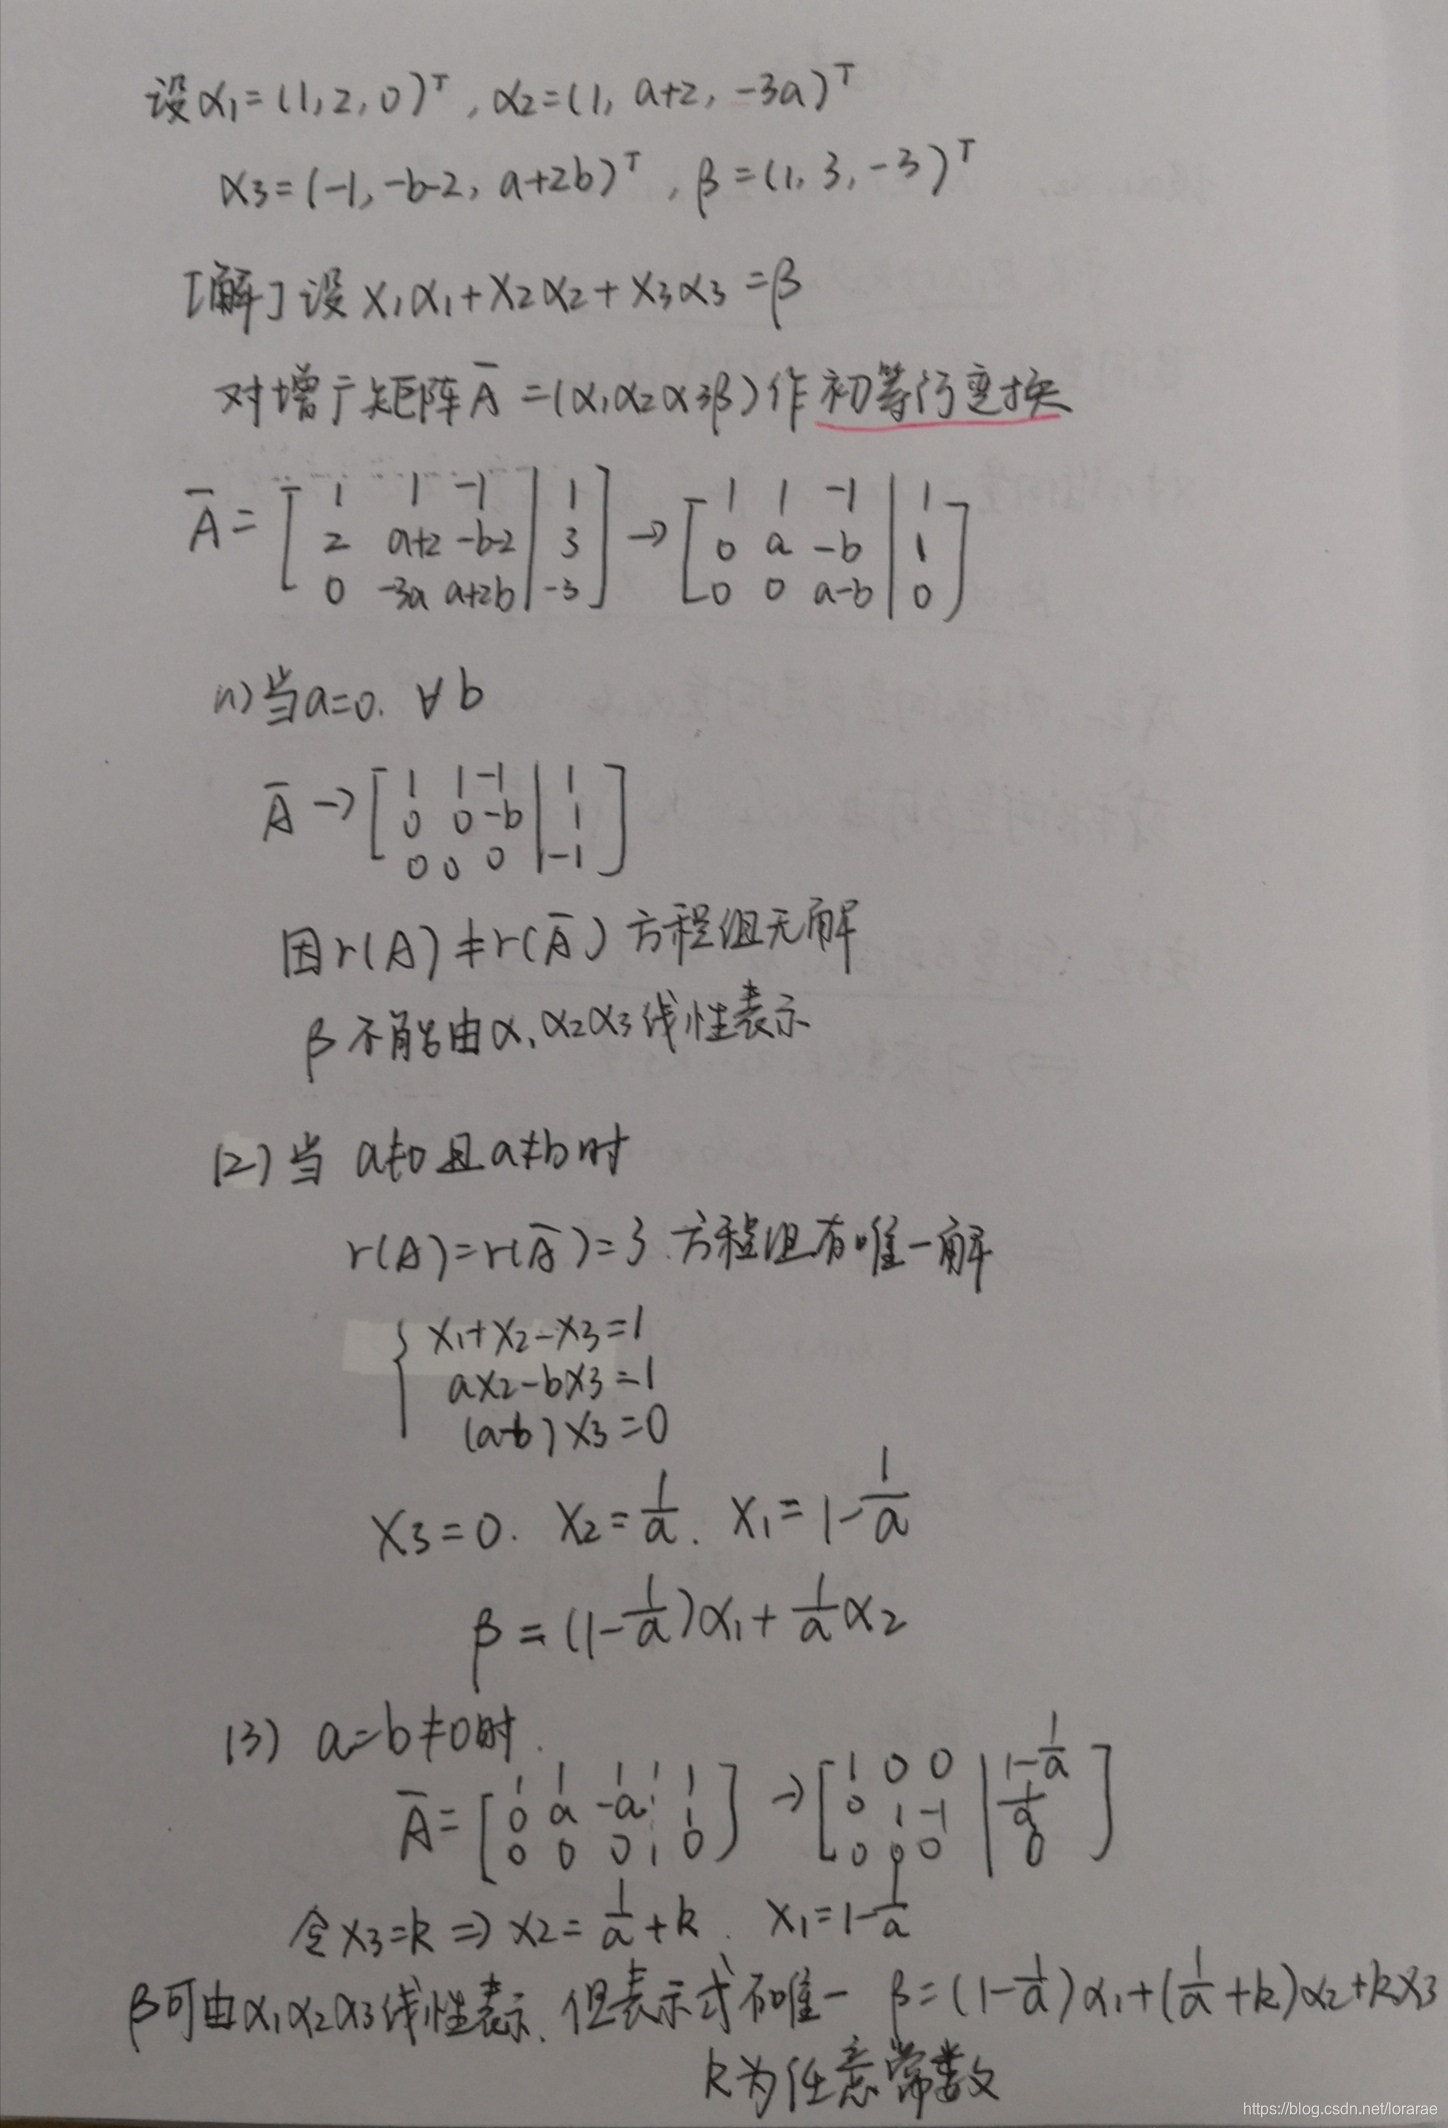 设α₁=(1,2,0)ᵀ, α₂=(1, a+2, -3a)ᵀ
α₃=(-1, -b-2, a+2b)ᵀ, β=(1, 3, -3)ᵀ
[解]设 x₁α₁+x₂α₂+x₃α₃=β
对增广矩阵A̅=(α₁α₂α₃β)作初等行变换
A̅= [ 1 1 -1 | 1 ] → [ 1 1 -1 | 1 ]
2 a+2 -b-2 | 3   0 a -b | 1
0 -3a a+2b | -3   0 0 a-b | 0
(1)当a=0. ∀b
A̅ → [ 1 1 -1 | 1 ]
0 0 -b | 1
0 0 0 | -1
因r(A)≠r(A̅) 方程组无解
β不能由α₁α₂α₃线性表示
(2)当 a≠0且a≠b时
r(A)=r(A̅)=3.方程组有唯一解
{ x₁+x₂-x₃=1
ax₂-bx₃=1
(a-b)x₃=0
x₃=0. x₂=1/a. x₁=1-1/a
β=(1-1/a)α₁+1/a α₂
(3) a=b≠0时.
A̅= [ 1 1 1 | 1 ] → [ 1 0 0 | 1-1/a ]
0 a -a | 1   0 1 -1 | 1/a
0 0 0 | 0   0 0 0 | 0
令x₃=k ⇒ x₂=1/a+k. x₁=1-1/a
β可由α₁α₂α₃线性表示.但表示式不唯一 β=(1-1/a)α₁+(1/a+k)α₂+kα₃
k为任意常数
https://blog.csdn.net/lorarae